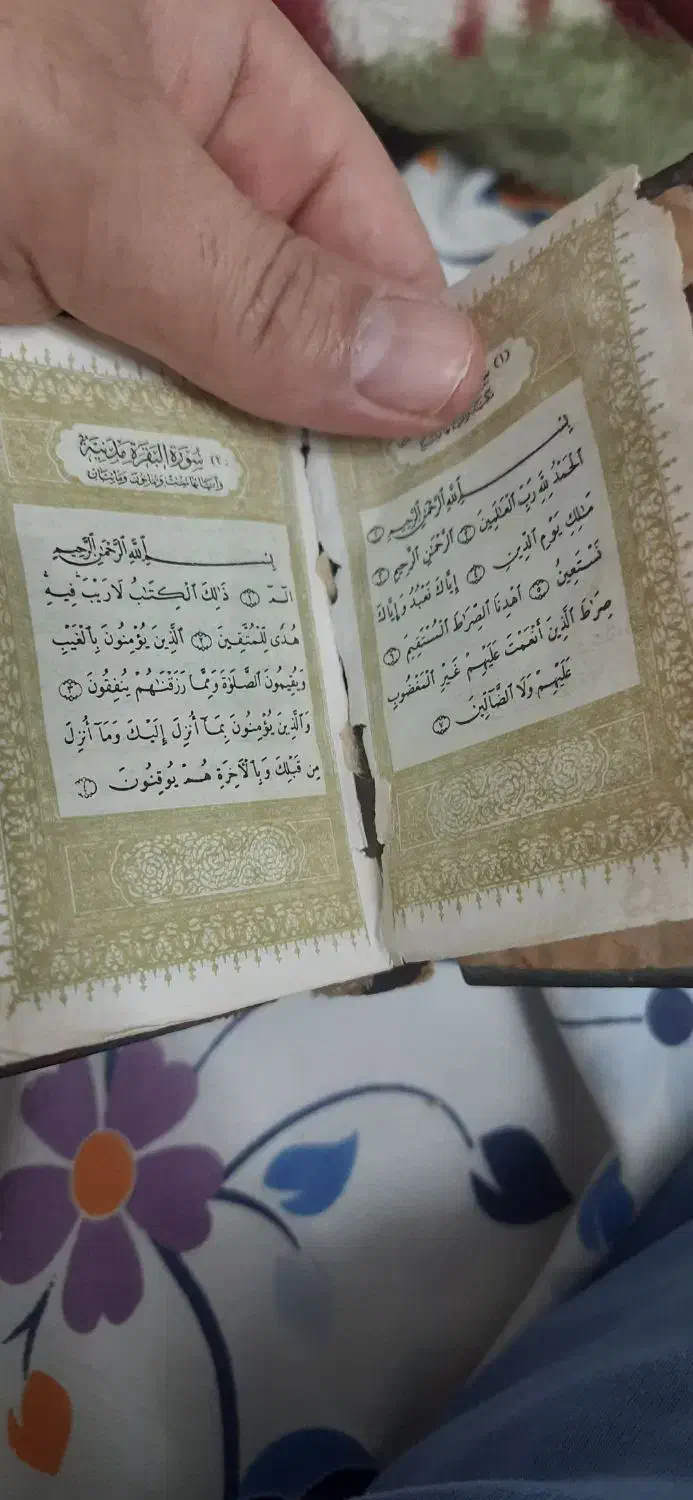 (١)
بِسْمِ اللَّهِ الرَّحْمَٰنِ الرَّحِيمِ ۝١
الْحَمْدُ لِلَّهِ رَبِّ الْعَالَمِينَ ۝٢ الرَّحْمَٰنِ الرَّحِيمِ ۝٣
مَٰلِكِ يَوْمِ الدِّينِ ۝٤ إِيَّاكَ نَعْبُدُ وَإِيَّاكَ
نَسْتَعِينُ ۝٥ اهْدِنَا الصِّرَٰطَ الْمُسْتَقِيمَ ۝٦
صِرَٰطَ الَّذِينَ أَنْعَمْتَ عَلَيْهِمْ غَيْرِ الْمَغْضُوبِ
عَلَيْهِمْ وَلَا الضَّالِّينَ ۝٧
(٢) سُورَةُ الْبَقَرَةِ مَدَنِيَّةٌ
وَآيَاتُهَا مِائَتَانِ وَسِتٌّ وَثَمَانُونَ
بِسْمِ اللَّهِ الرَّحْمَٰنِ الرَّحِيمِ
الٓمٓ ۝١ ذَٰلِكَ الْكِتَٰبُ لَا رَيْبَ ۛ فِيهِ ۛ
هُدًى لِلْمُتَّقِينَ ۝٢ الَّذِينَ يُؤْمِنُونَ بِالْغَيْبِ
وَيُقِيمُونَ الصَّلَوٰةَ وَمِمَّا رَزَقْنَٰهُمْ يُنْفِقُونَ ۝٣
وَالَّذِينَ يُؤْمِنُونَ بِمَآ أُنْزِلَ إِلَيْكَ وَمَآ أُنْزِلَ
مِن قَبْلِكَ وَبِالْآخِرَةِ هُمْ يُوقِنُونَ ۝٤